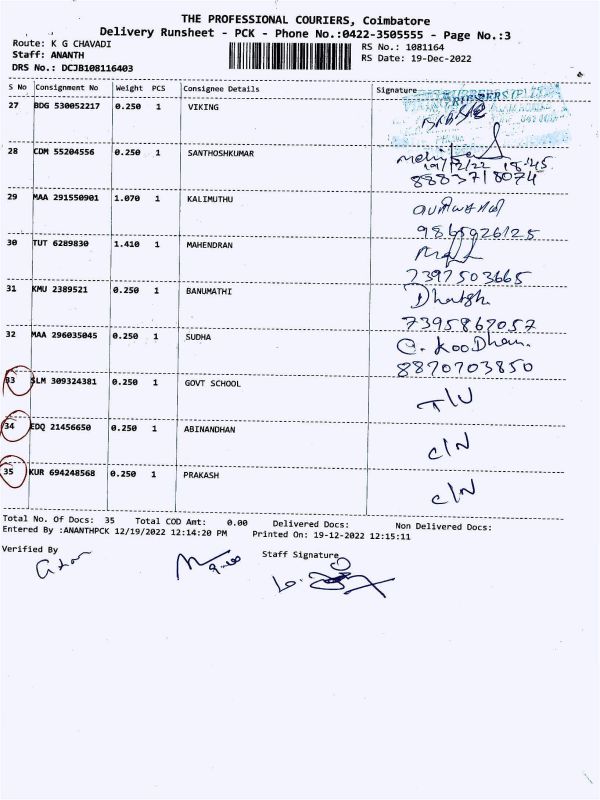 THE PROFESSIONAL COURIERS, Coimbatore
Delivery Runsheet - PCK - Phone No.:0422-3505555 - Page No.:3
Route: K G CHAVADI
Staff: ANANTH
DRS No.: DCJB108116403
RS No.: 1081164
RS Date: 19-Dec-2022
S No Consignment No Weight PCS Consignee Details Signature
27 BDG 530052217 0.250 1 VIKING
28 CDM 55204556 0.250 1 SANTHOSHKUMAR
19/12/22 18:45
8883718074
29 MAA 291550901 1.070 1 KALIMUTHU
9865926125
30 TUT 6289830 1.410 1 MAHENDRAN
7397503665
31 KMU 2389521 0.250 1 BANUMATHI
7395867057
32 MAA 296035045 0.250 1 SUDHA
8870703850
33 SLM 309324381 0.250 1 GOVT SCHOOL
T/U
34 EDQ 21456650 0.250 1 ABINANDHAN
C/N
35 KUR 694248568 0.250 1 PRAKASH
C/N
Total No. Of Docs: 35 Total COD Amt: 0.00 Delivered Docs: Non Delivered Docs:
Entered By :ANANTHPCK 12/19/2022 12:14:20 PM Printed On: 19-12-2022 12:15:11
Verified By Staff Signature